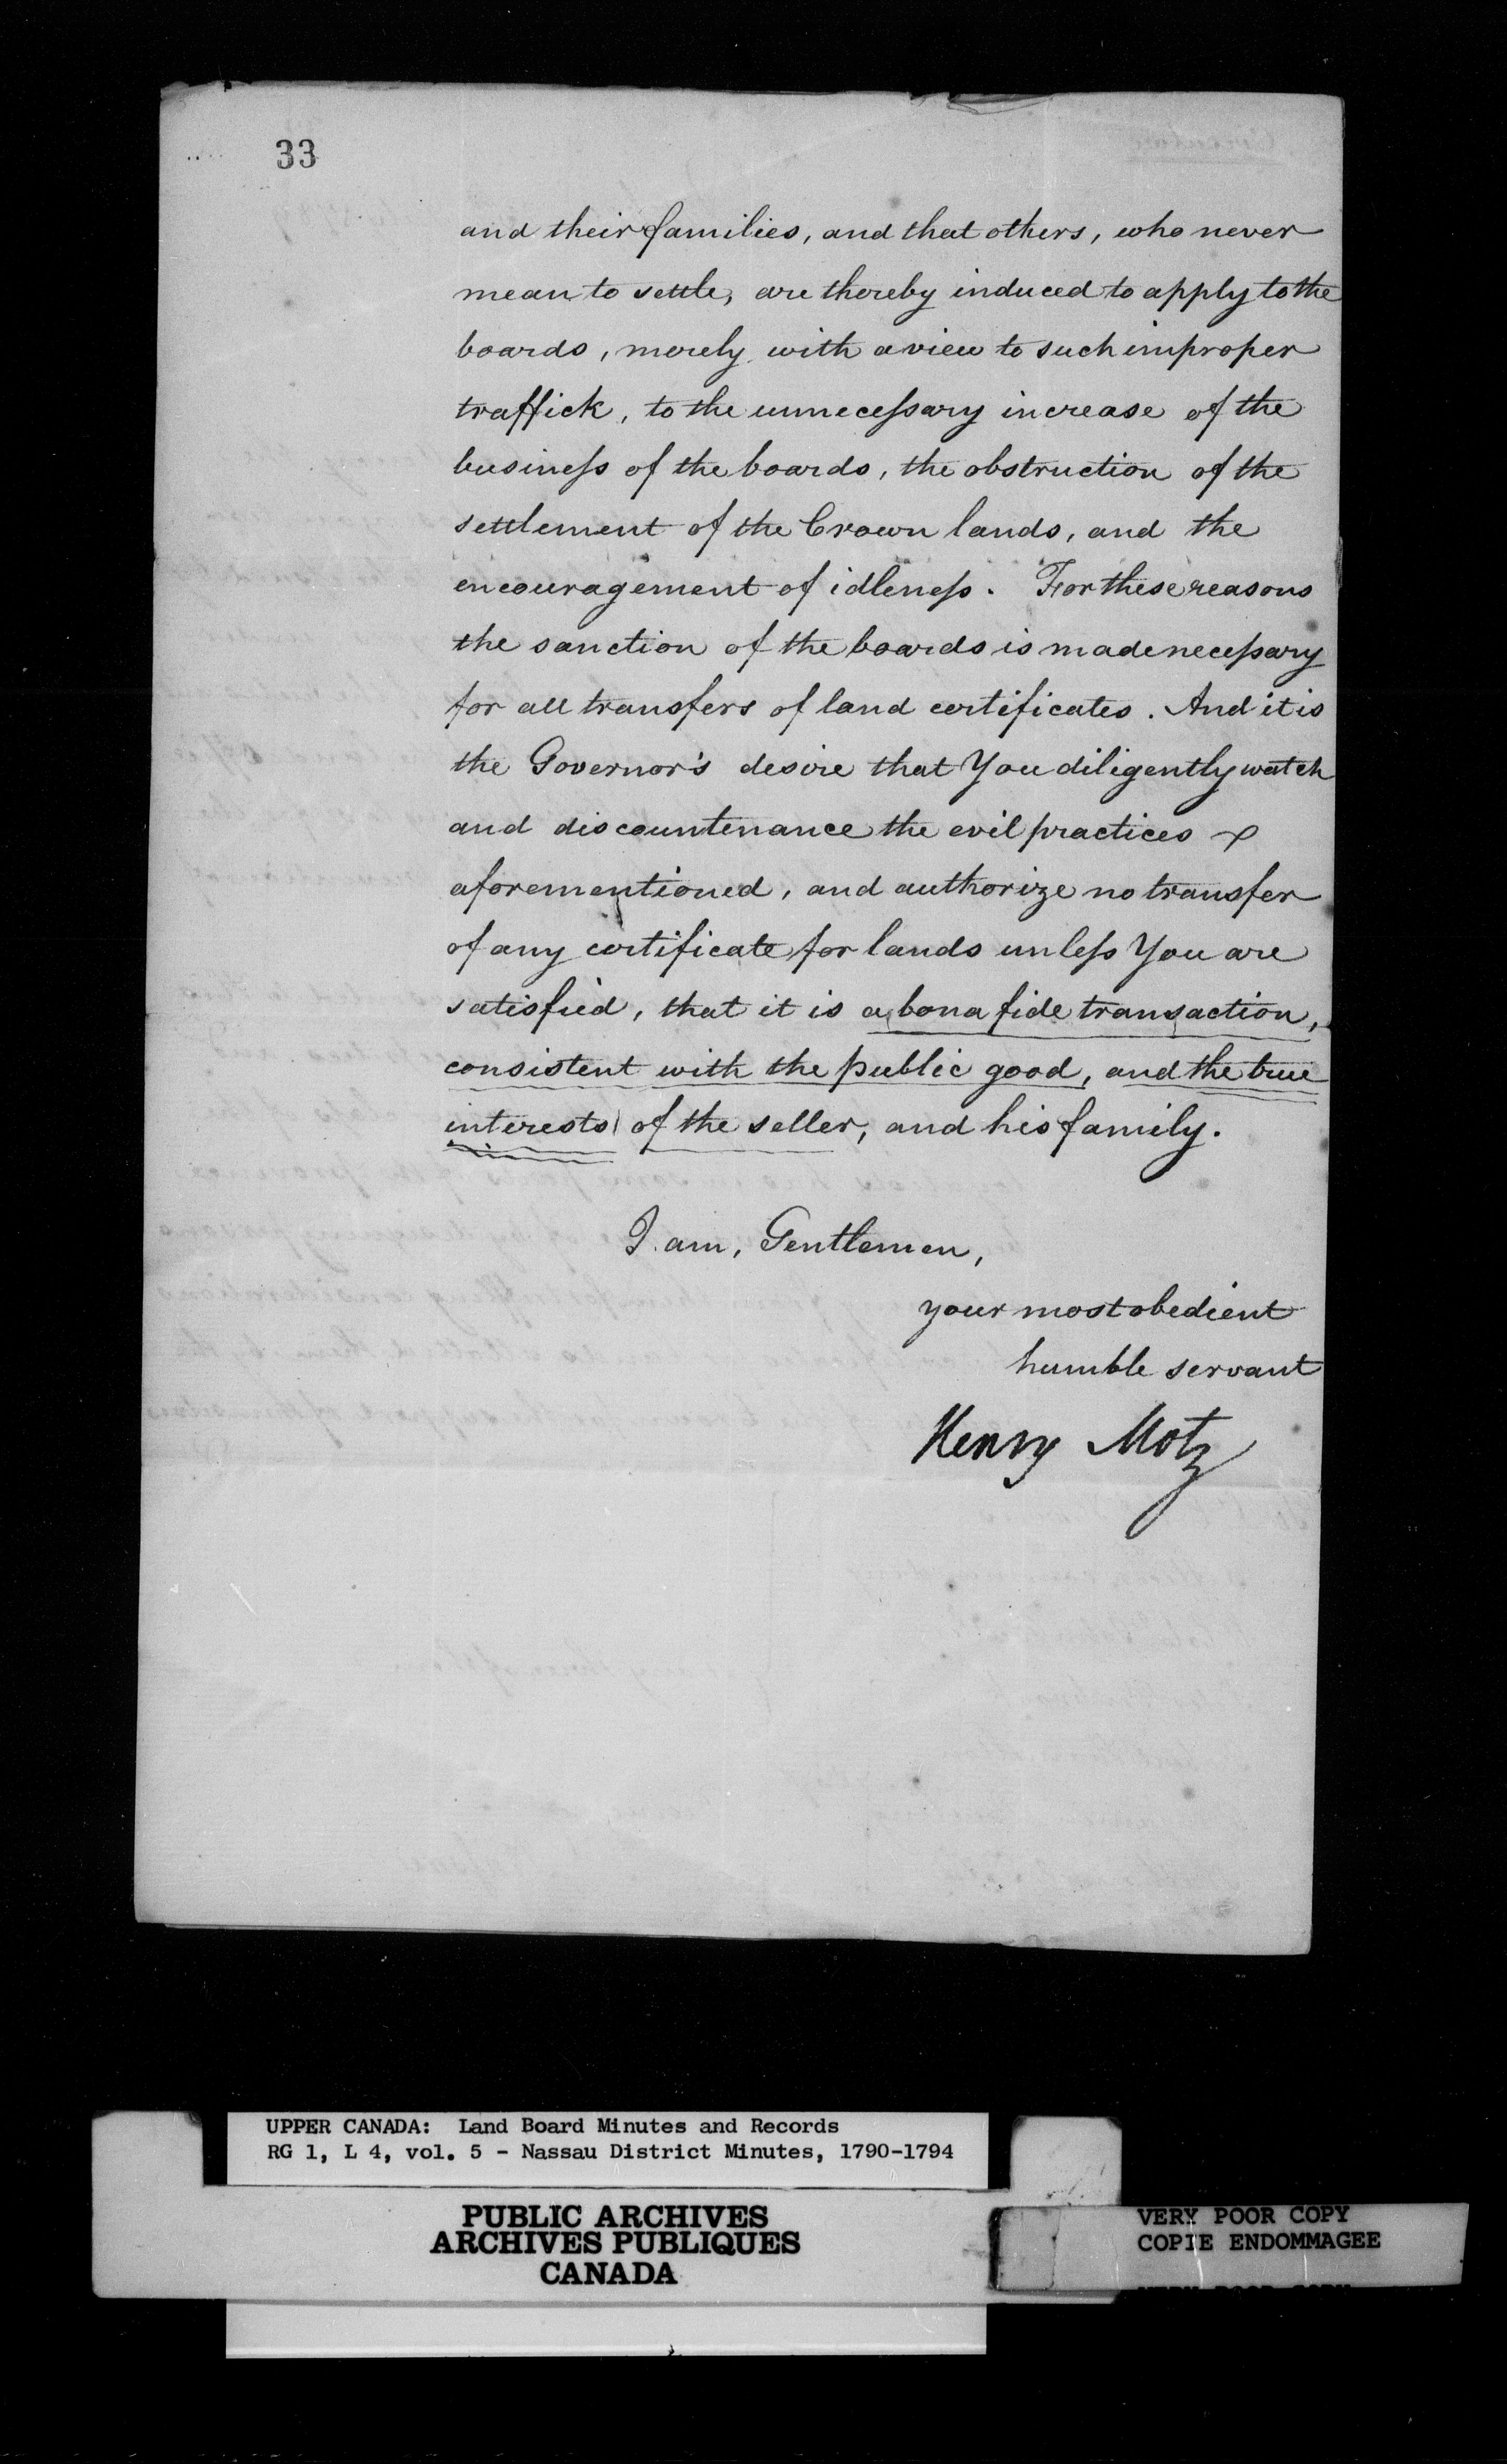 33
and their families, and that others, who never
mean to settle, are thereby induced to apply to the
boards, merely with a view to such improper
traffick, to the unnecessary increase of the
business of the boards, the obstruction of the
settlement of the Crown lands, and the
encouragement of idleness. For these reasons
the sanction of the boards is made necessary
for all transfers of land certificates. And it is
the Governor's desire that You diligently watch
and discountenance the evil practices
aforementioned, and authorize no transfer
of any certificate for lands unless You are
satisfied, that it is a bona fide transaction,
consistent with the public good, and the true
interests of the seller, and his family.
I am, Gentlemen,
your most obedient
humble servant
Henry Motz
UPPER CANADA: Land Board Minutes and Records
RG 1, L 4, vol. 5 - Nassau District Minutes, 1790-1794
PUBLIC ARCHIVES
ARCHIVES PUBLIQUES
CANADA
VERY POOR COPY
COPIE ENDOMMAGEE